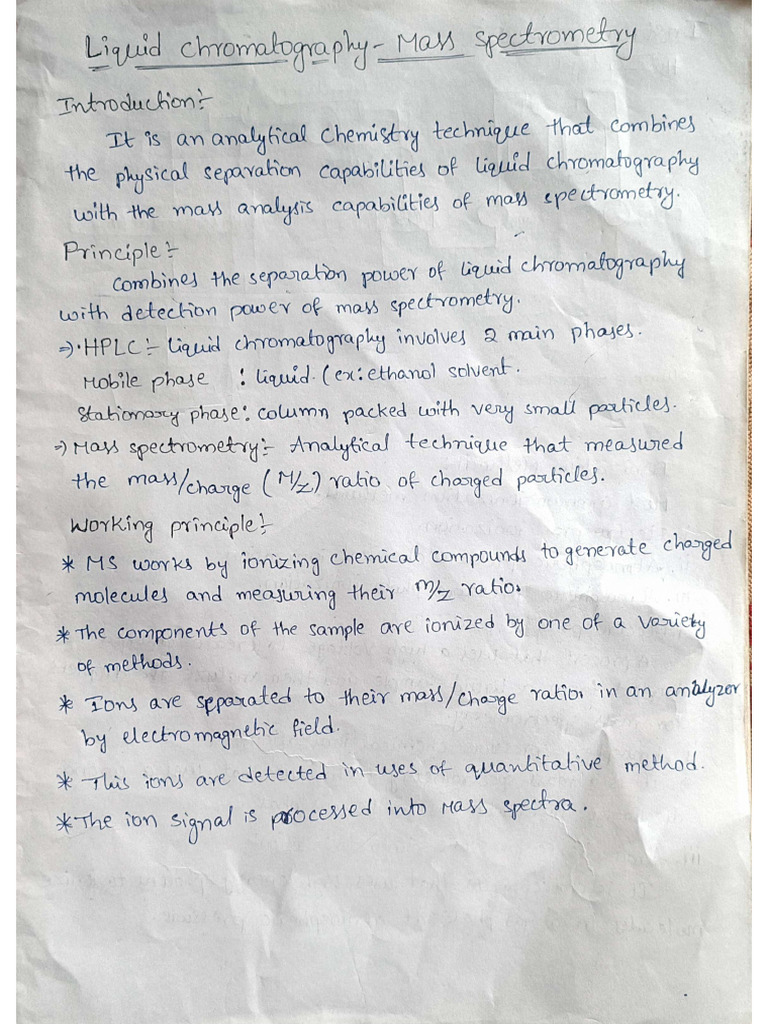 Liquid chromatography - Mass spectrometry
Introduction:-
It is an analytical chemistry technique that combines
the physical separation capabilities of liquid chromatography
with the mass analysis capabilities of mass spectrometry.
Principle:-
Combines the separation power of liquid chromatography
with detection power of mass spectrometry.
⇒ · HPLC:- Liquid chromatography involves 2 main phases.
Mobile phase : liquid. (ex: ethanol solvent.
Stationary phase: column packed with very small particles.
⇒ Mass spectrometry:- Analytical technique that measured
the mass/charge (M/Z) ratio of charged particles.
Working principle:-
* MS works by ionizing chemical compounds to generate charged
molecules and measuring their m/z ratio.
* The components of the sample are ionized by one of a variety
of methods.
* Ions are separated to their mass/charge ratio. in an analyzer
by electromagnetic field.
* This ions are detected in uses of quantitative method.
* The ion signal is processed into Mass spectra.